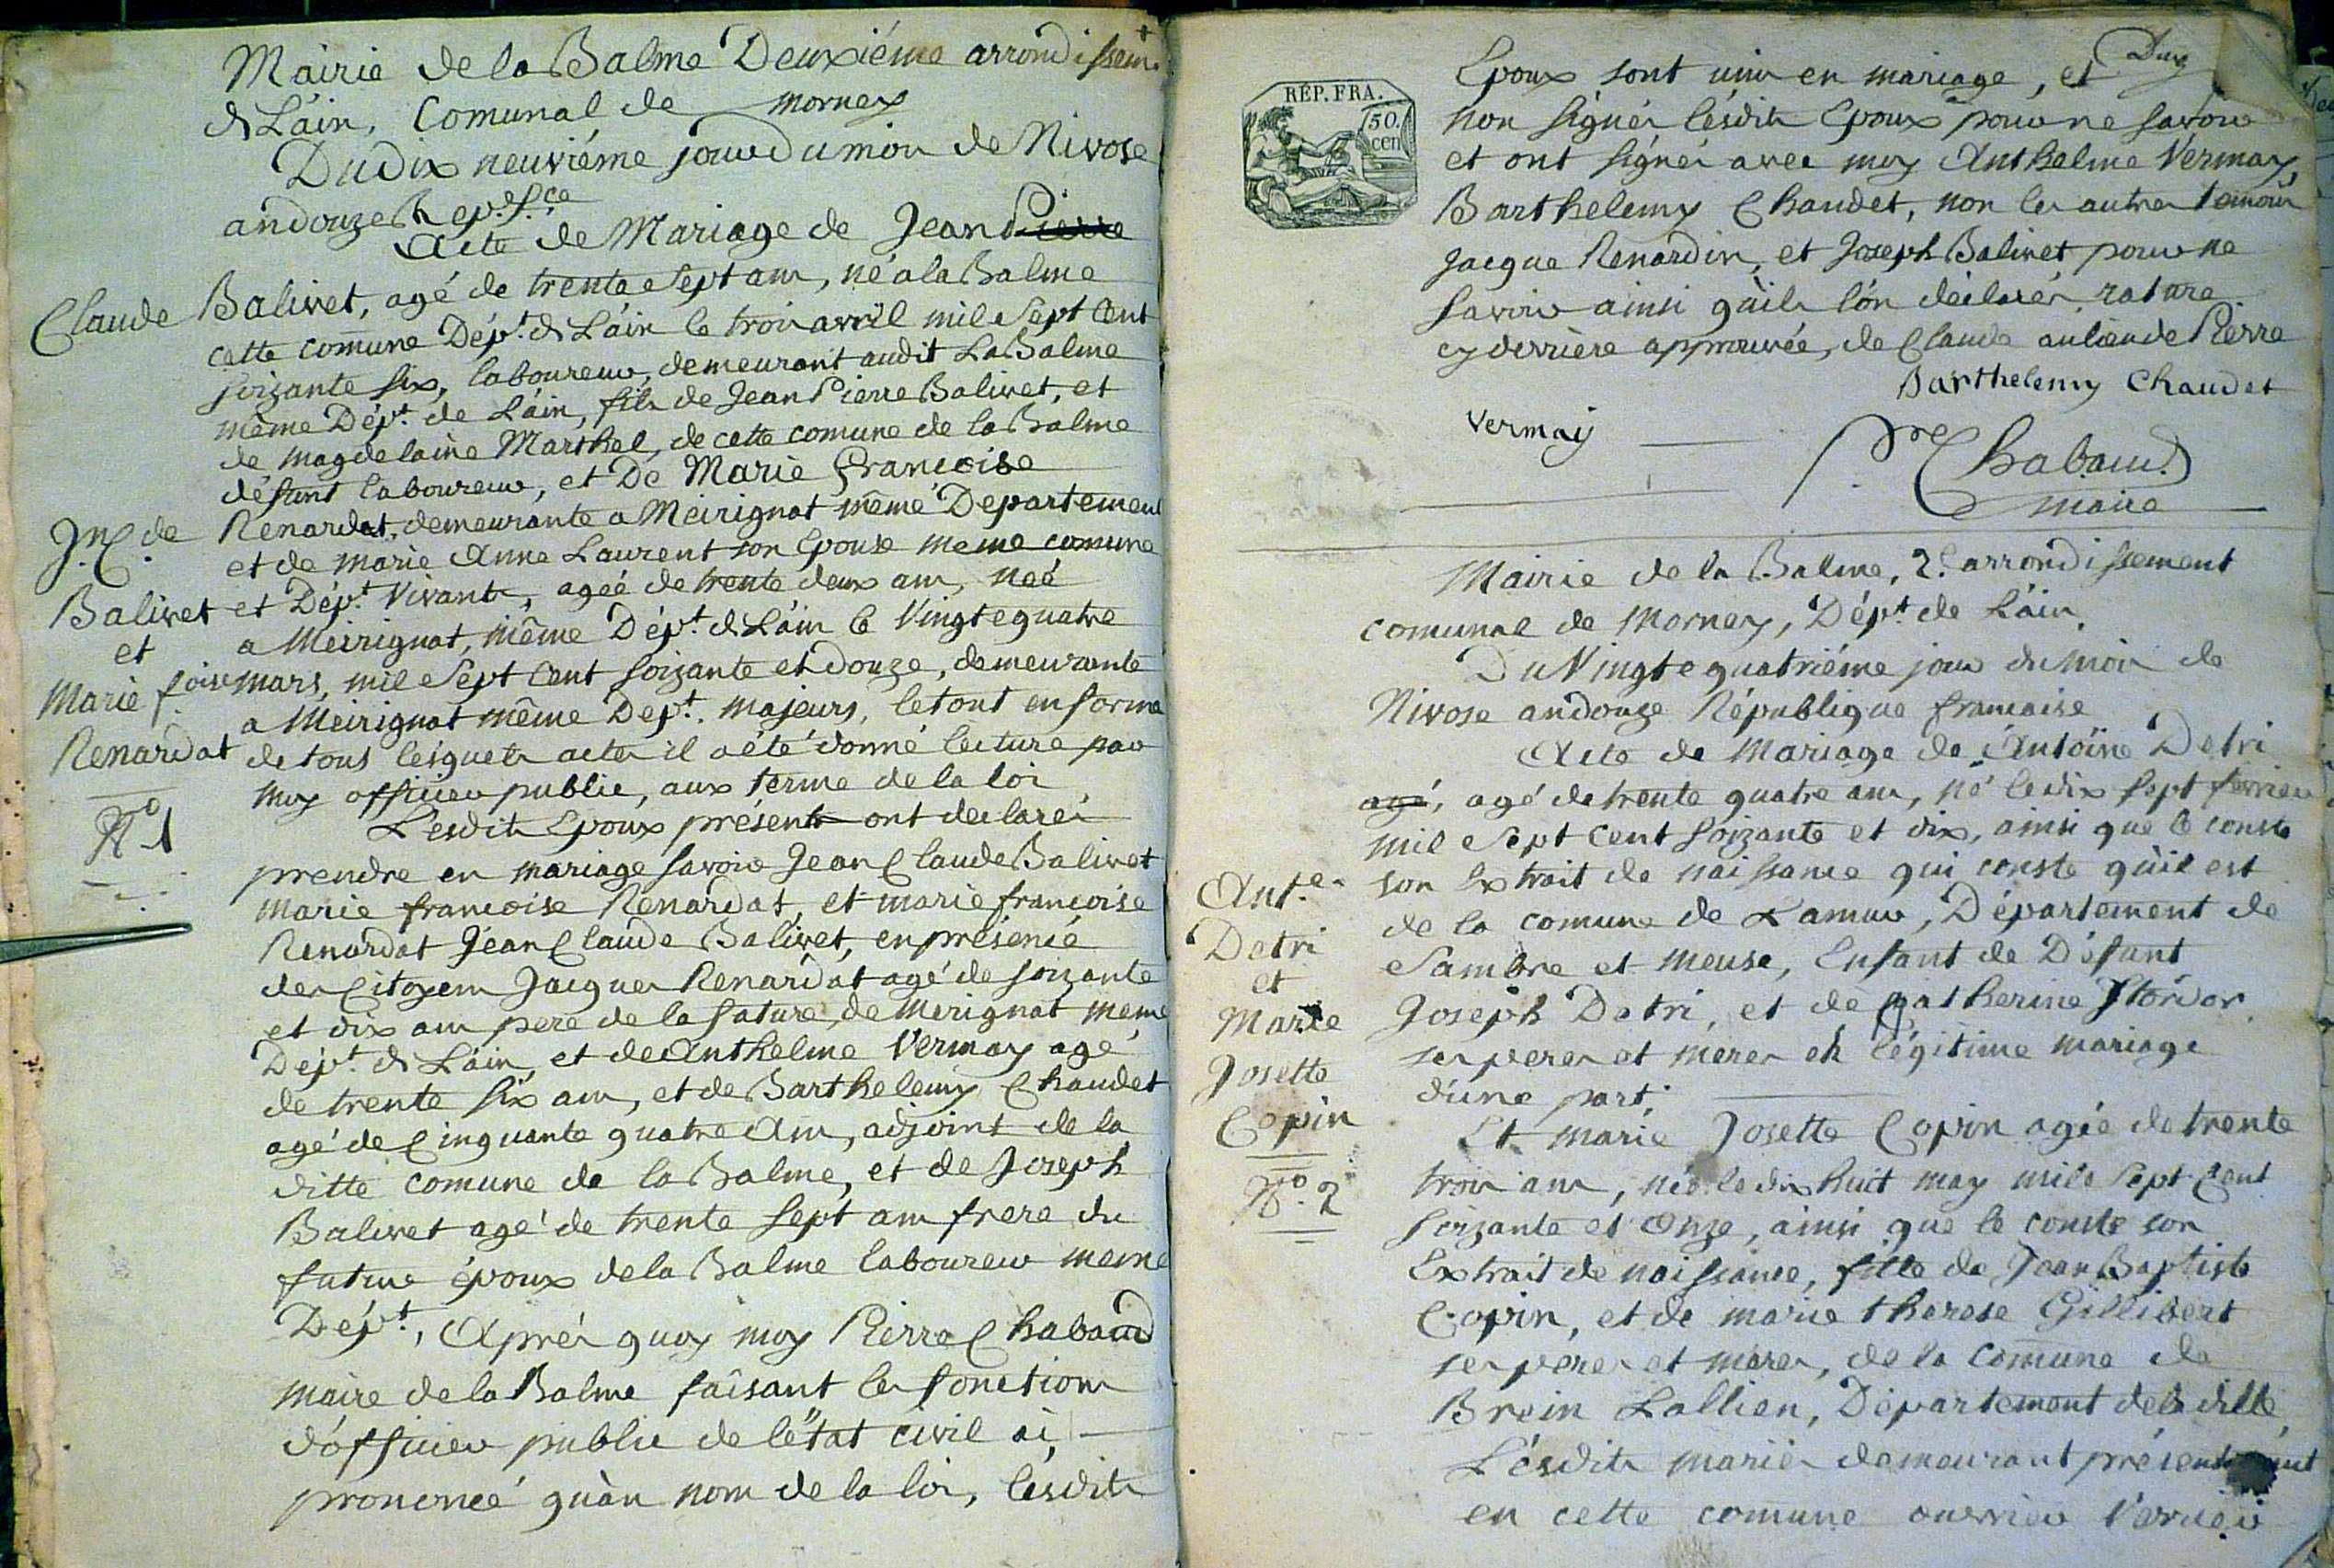 Mairie de la Balme Deuxiéme arrondissem.t
d L'áin, Comunal de mornay
Du dix neuviéme jour du mois de Nivose
an douze Rep.e f.ce
Acte de Mariage de Jean Pierre
Claude
Balivet, agé de trente sept ans, né a la Balme
cette comune Dép.t d L'áin le trois avril mil sept Cent
soizante six, laboureur, demeurant audit La Balme
même Dép.t de L'áin, fils de Jean Pierre Balivet, et
de magdelaine Marthel, de cette comune de la Balme
défunt laboureur, et De Marie Françoise
Renardat, demeurante a Meirignat même Departement
et de marie Anne Laurent son Epouse meme comune
et Dép.t Vivants, ageé de trente deux ans, neé
a Meirignat, même Dép.t d L'áin le Vingt e quatre
mars, mil sept Cent soizante et douze, demeurante
a Meirignat même Dep.t majeurs, le tout en forme
de tous lésquels actes il a été donné lecture par
moy officier public, aux terme de la loi
L'esdits Epoux présents ont declarés
prendre en mariage savoir Jean Claude Balivet
marie francoise Renardat, et marie françoise
Renardat Jean Claude Balivet, en présence
des Citoyens Jacques Renardat agé de soizante
et dix ans pere de la future, de Merignat meme
Dép.t d L'áin, et de Anthelme Vermay agé
de trente six ans, et de Barthelemy Chaudet
agé de Cinquante quatre Ans, adjoint de la
ditte comune de la Balme, et de Joseph
Balivet agé de trente sept ans frere du
futur époux de la Balme laboureur meme
Dép.t, Aprés quoy moy Pierre Chabaud
maire de la Balme faisant les fonctions
d'officier public de l'état civil ai
prononcé qu'àu nom de la loi, lesdits
J.n C. de
Balivet
et
Marie f.oise
Renardat
N.o 1
RÉP. FRA.
50.
cen
Epoux sont unis en mariage, et
non signés lésdits Epoux pour ne savoir
et ont signés avec moy Anthelme Vermay,
Barthelemy Chaudet, non les autres temoins
Jacque Renardin, et Joseph Balivet pour ne
savoir ainsi qùils lón déclarés rature
cy derrière approuvée, de Claude au lieu de Pierre
Barthelemy Chaudet
Vermay
P.re Chabaud
maire
Mairie de la Balme, 2.e arrondissement
comunal de Mornay, Dép.t de L'áin,
Du Vingt e quatriéme jour du mois de
Nivose an douze République francaise
Acte de Mariage de Antoine Detri
agé, agé de trente quatre ans, né le dix sept fevrier
mil sept cent soizante et dix, ainsi que le conste
son Extrait de naissance qui conste qùil est
de la comune de Namur, Département de
Sambre et meuse, Enfant de Défunt
Joseph Detri, et de Catherine Stordor
ses peres et meres en légitime mariage
d'une part
Et marie Josette Copin agée de trente
trois ans, née le dix huit may mil sept Cent
soizante et Onze, ainsi que le conste son
Extrait de naissance, fille de Jean Baptiste
Copin, et de marie therese Gillibert
ses peres et meres, de la comune de
Brein Lallien, Département de la dille
L'ésdits mariés demeurant présentement
en cette comune ouvrier
Ant.e
Detri
et
Marie
Josette
Copin
N.o 2